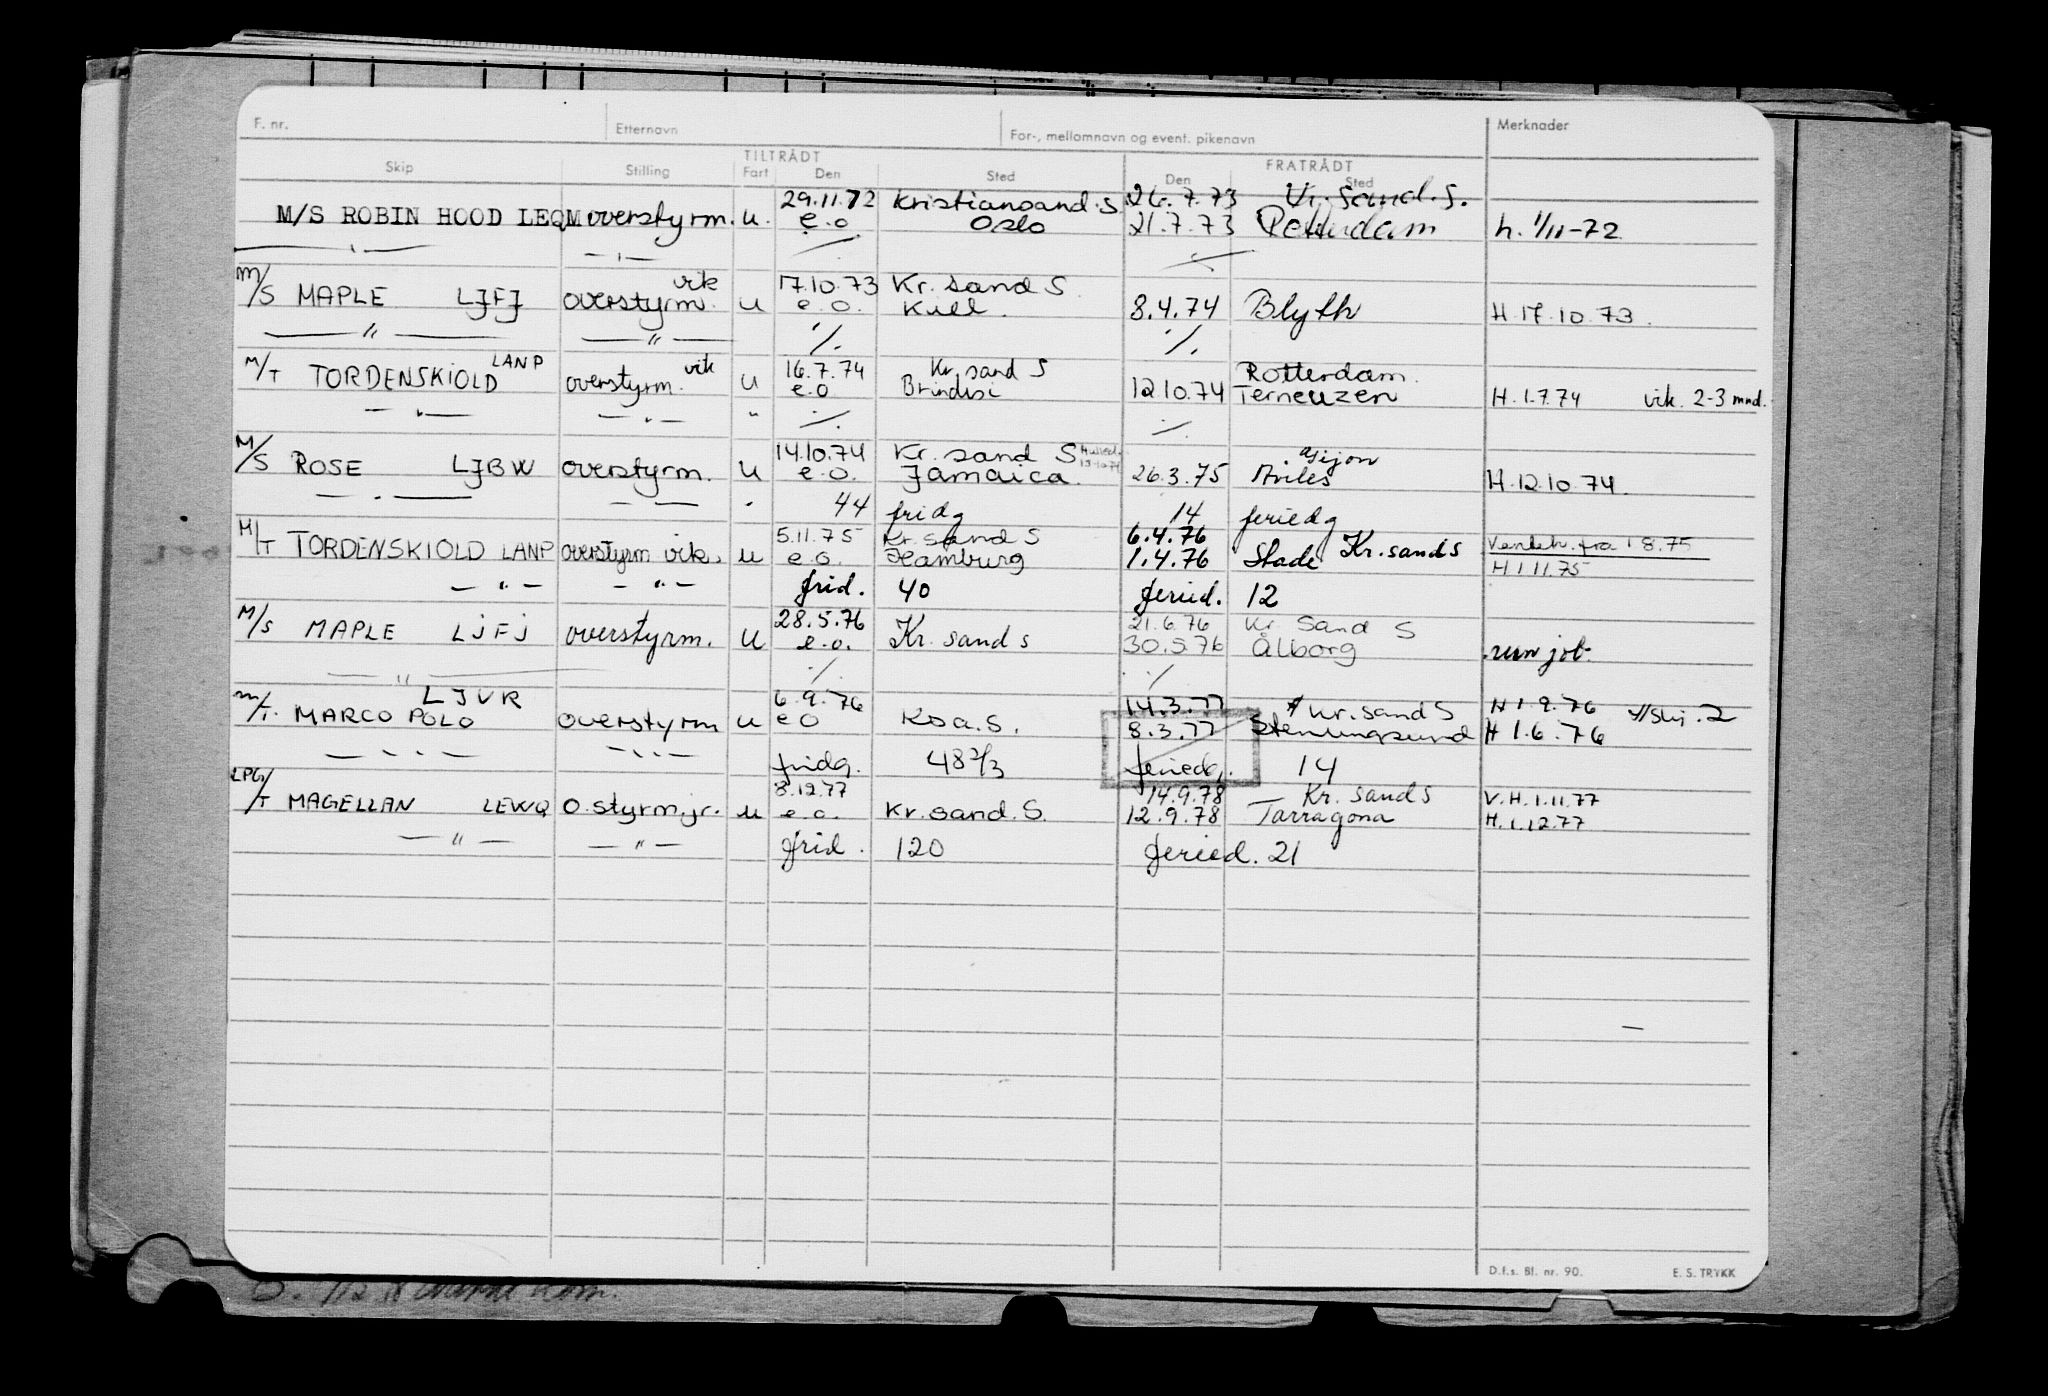 F. nr. Etternavn For-, mellomnavn og event. pikenavn Merknader
TILTRÅDT FRATRÅDT
Skip Stilling Fart Den Sted Den Sted
29.11.72 Kristiansand.S. 26.7.73 Kr.sand.S.
M/S ROBIN HOOD LEQM overstyrm. u. e.o Oslo 21.7.73 Rotterdam h. 1/11-72
— " — — " — ./.
vik 17.10.73 Kr.sand S.
M/S MAPLE LJFJ overstyrm. u e.o. Kiel. 8.4.74 Blyth H.17.10.73.
— " — — " — ./. ./.
LANP vik 16.7.74 Kr.sand S Rotterdam.
M/T TORDENSKIOLD overstyrm. u e.o Brindisi 12.10.74 Terneuzen H.1.7.74 vik. 2-3 mnd.
— " — — " — " ./. ./.
14.10.74 Kr.sand S Gijon
M/S ROSE LJBW overstyrm. u e.o. Jamaica. 26.3.75 Aviles H.12.10.74.
— " — — " — 44 fridg 14 feriedg
5.11.75 Kr.sand S 6.4.76 Kr.sand S
M/T TORDENSKIOLD LANP overstyrm vik. u e.o. Hamburg 1.4.76 Stade fra 1 8.75
H 1.11.75
— " — — " — frid. 40 feried. 12
28.5.76 21.6.76 Kr Sand S
M/S MAPLE LJFJ overstyrm. u e.o. Kr.sand s 30.5.76 Ålborg run job.
— " — ./. ./.
LJVR 6.9.76 14.3.77 Kr.sand S H 1.9.76
M/T. MARCO POLO overstyrm u e o Ks.a.S. 8.3.77 Stenungsund H 1.6.76
— " — — " — fridg. 48 2/3 feriedg. 14
8.12.77 14.9.78 Kr. sand s V.H.1.11.77
LPG/T MAGELLAN LEWQ o.styrm.jr. u e.o. Kr.sand.S. 12.9.78 Tarragona H.1.12.77
— " — — " — frid. 120 feried. 21
D.f.s. Bl. nr. 90. E. S. TRYKK